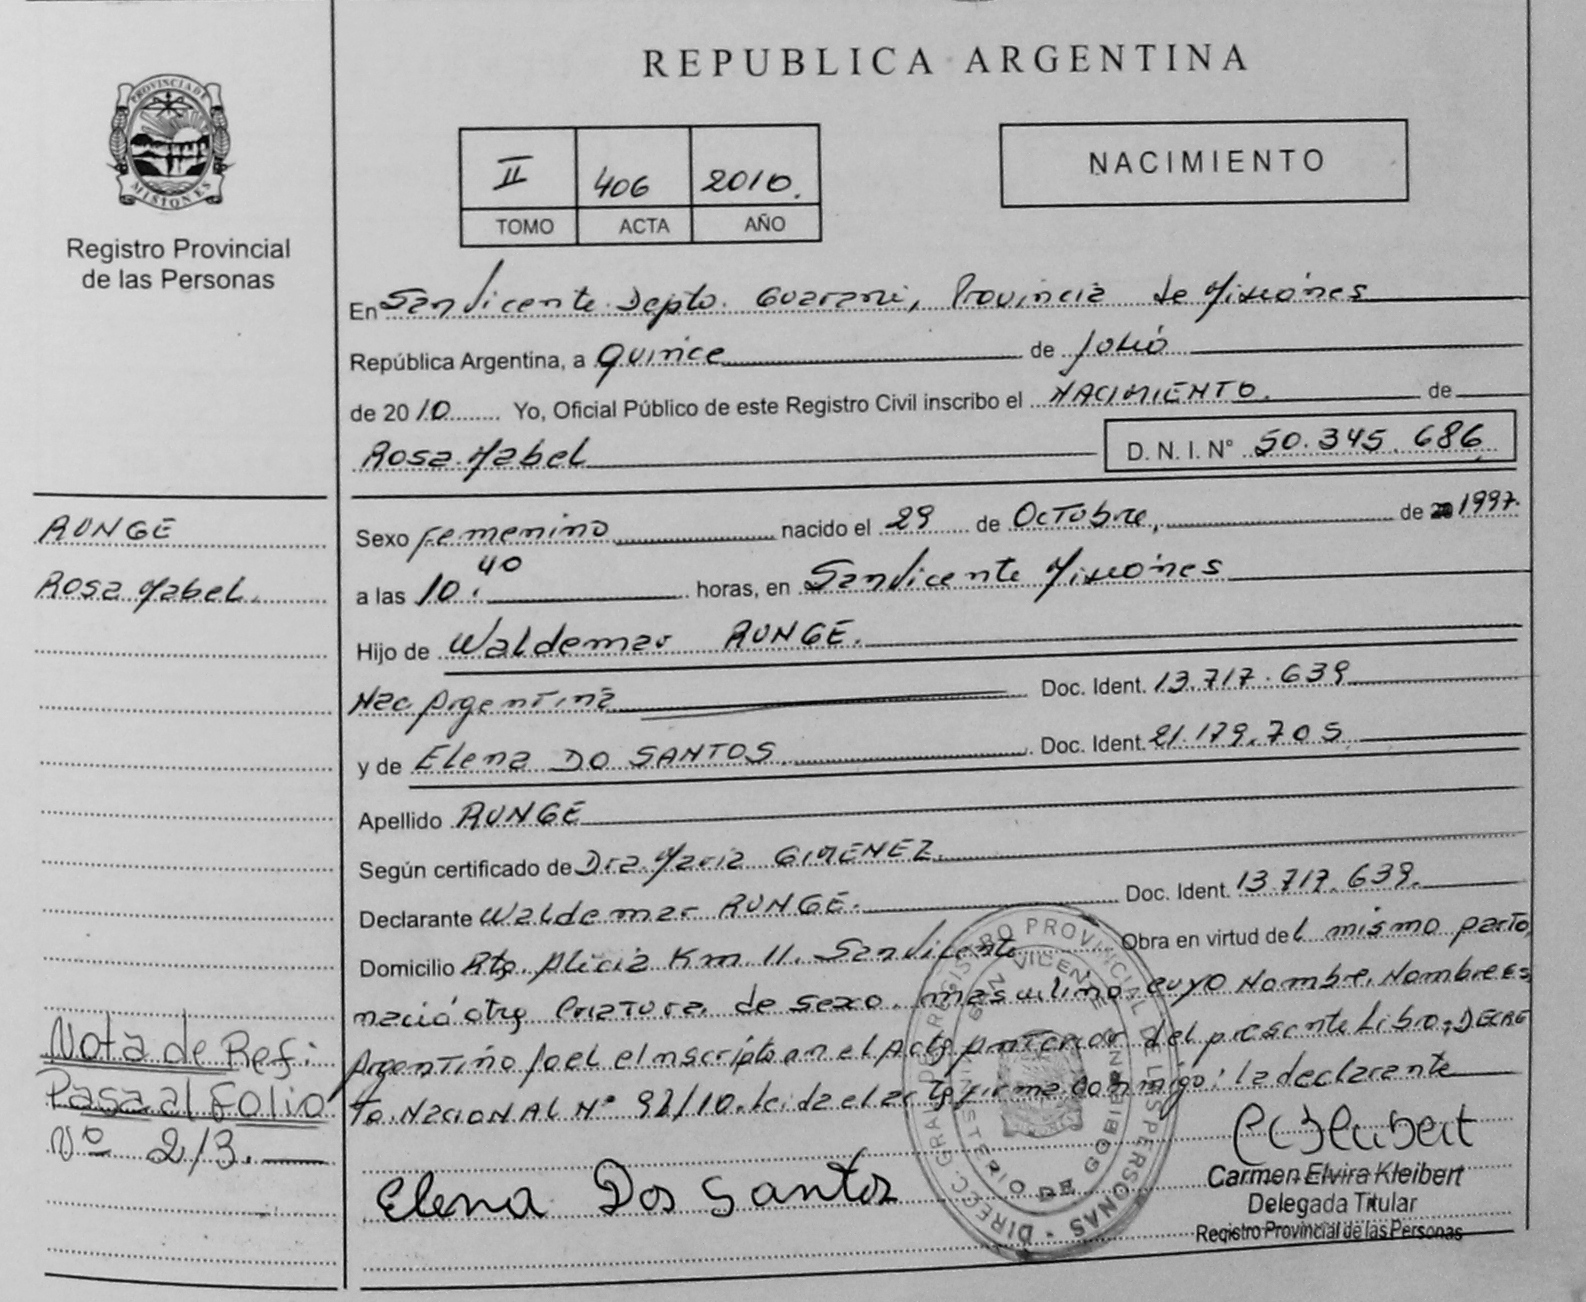 PROVINCIA DE
MISIONES
Registro Provincial
de las Personas
REPUBLICA ARGENTINA
II 406 2010.
TOMO ACTA AÑO
NACIMIENTO
En San Vicente Depto. Guarani, Provincia de Misiones
República Argentina, a Quince de Julio
de 2010 Yo, Oficial Público de este Registro Civil inscribo el NACIMIENTO. de
Rosa Mabel D. N. I. N° 50.345.686
RUNGE
Rosa Mabel.
Sexo Femenino nacido el 29 de Octubre, de 20 1997.
a las 10:40 horas, en San Vicente Misiones
Hijo de Waldemar RUNGE.
Nac Argentina Doc. Ident. 13.717.639
y de Elena DO SANTOS. Doc. Ident. 21.179.705
Apellido RUNGE
Según certificado de Dra. Maria GIMENEZ.
Declarante Waldemar RUNGE. Doc. Ident. 13.717.639.
Domicilio Rta. Alicia Km 11. San Vicente Obra en virtud del mismo parto,
nació otra Criatura, de sexo masculino, cuyo Nombre, Nombre Es
Argentino Joel e Inscripto en el Acta Anterior del presente Libro; DECRE
To NACIONAL Nº 92/10. Leida el acta firma conmigo: la declarante
Nota de Ref:
Pasa al Folio
Nº 213.
Elena Dos Santos
Carmen Elvira Kleibert
Delegada Titular
Registro Provincial de las Personas
DIREC. GRAL. DE REGISTRO PROVINCIAL DE LAS PERSONAS
SAN VICENTE
MINISTERIO DE GOBIERNO